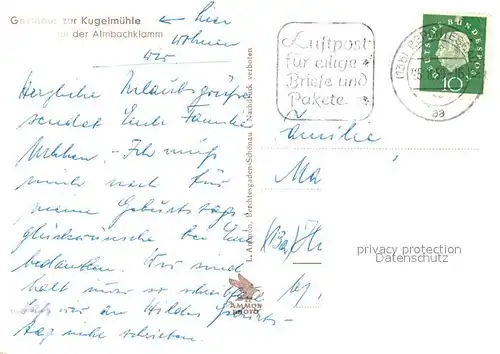 Gasthaus zur Kugelmühle
an der Almbachklamm
← hier
wohnen
wir
Herzliche Urlaubsgrüße
sendet Euch Familie
Ich muß
mich noch für
meine Geburtstags
glückwünsche bei Euch
bedanken. Wir sind
halt nur so schreibfaul
daß wir an Hildes Geburts-
tag nicht schrieben.
L. Ammon, Berchtesgaden-Schönau / Nachdruck verboten
AMMON
PHOTO
Luftpost
für eilige
Briefe und
Pakete
DEUTSCHE BUNDESPOST
10
aa
Familie
privacy protection
Datenschutz